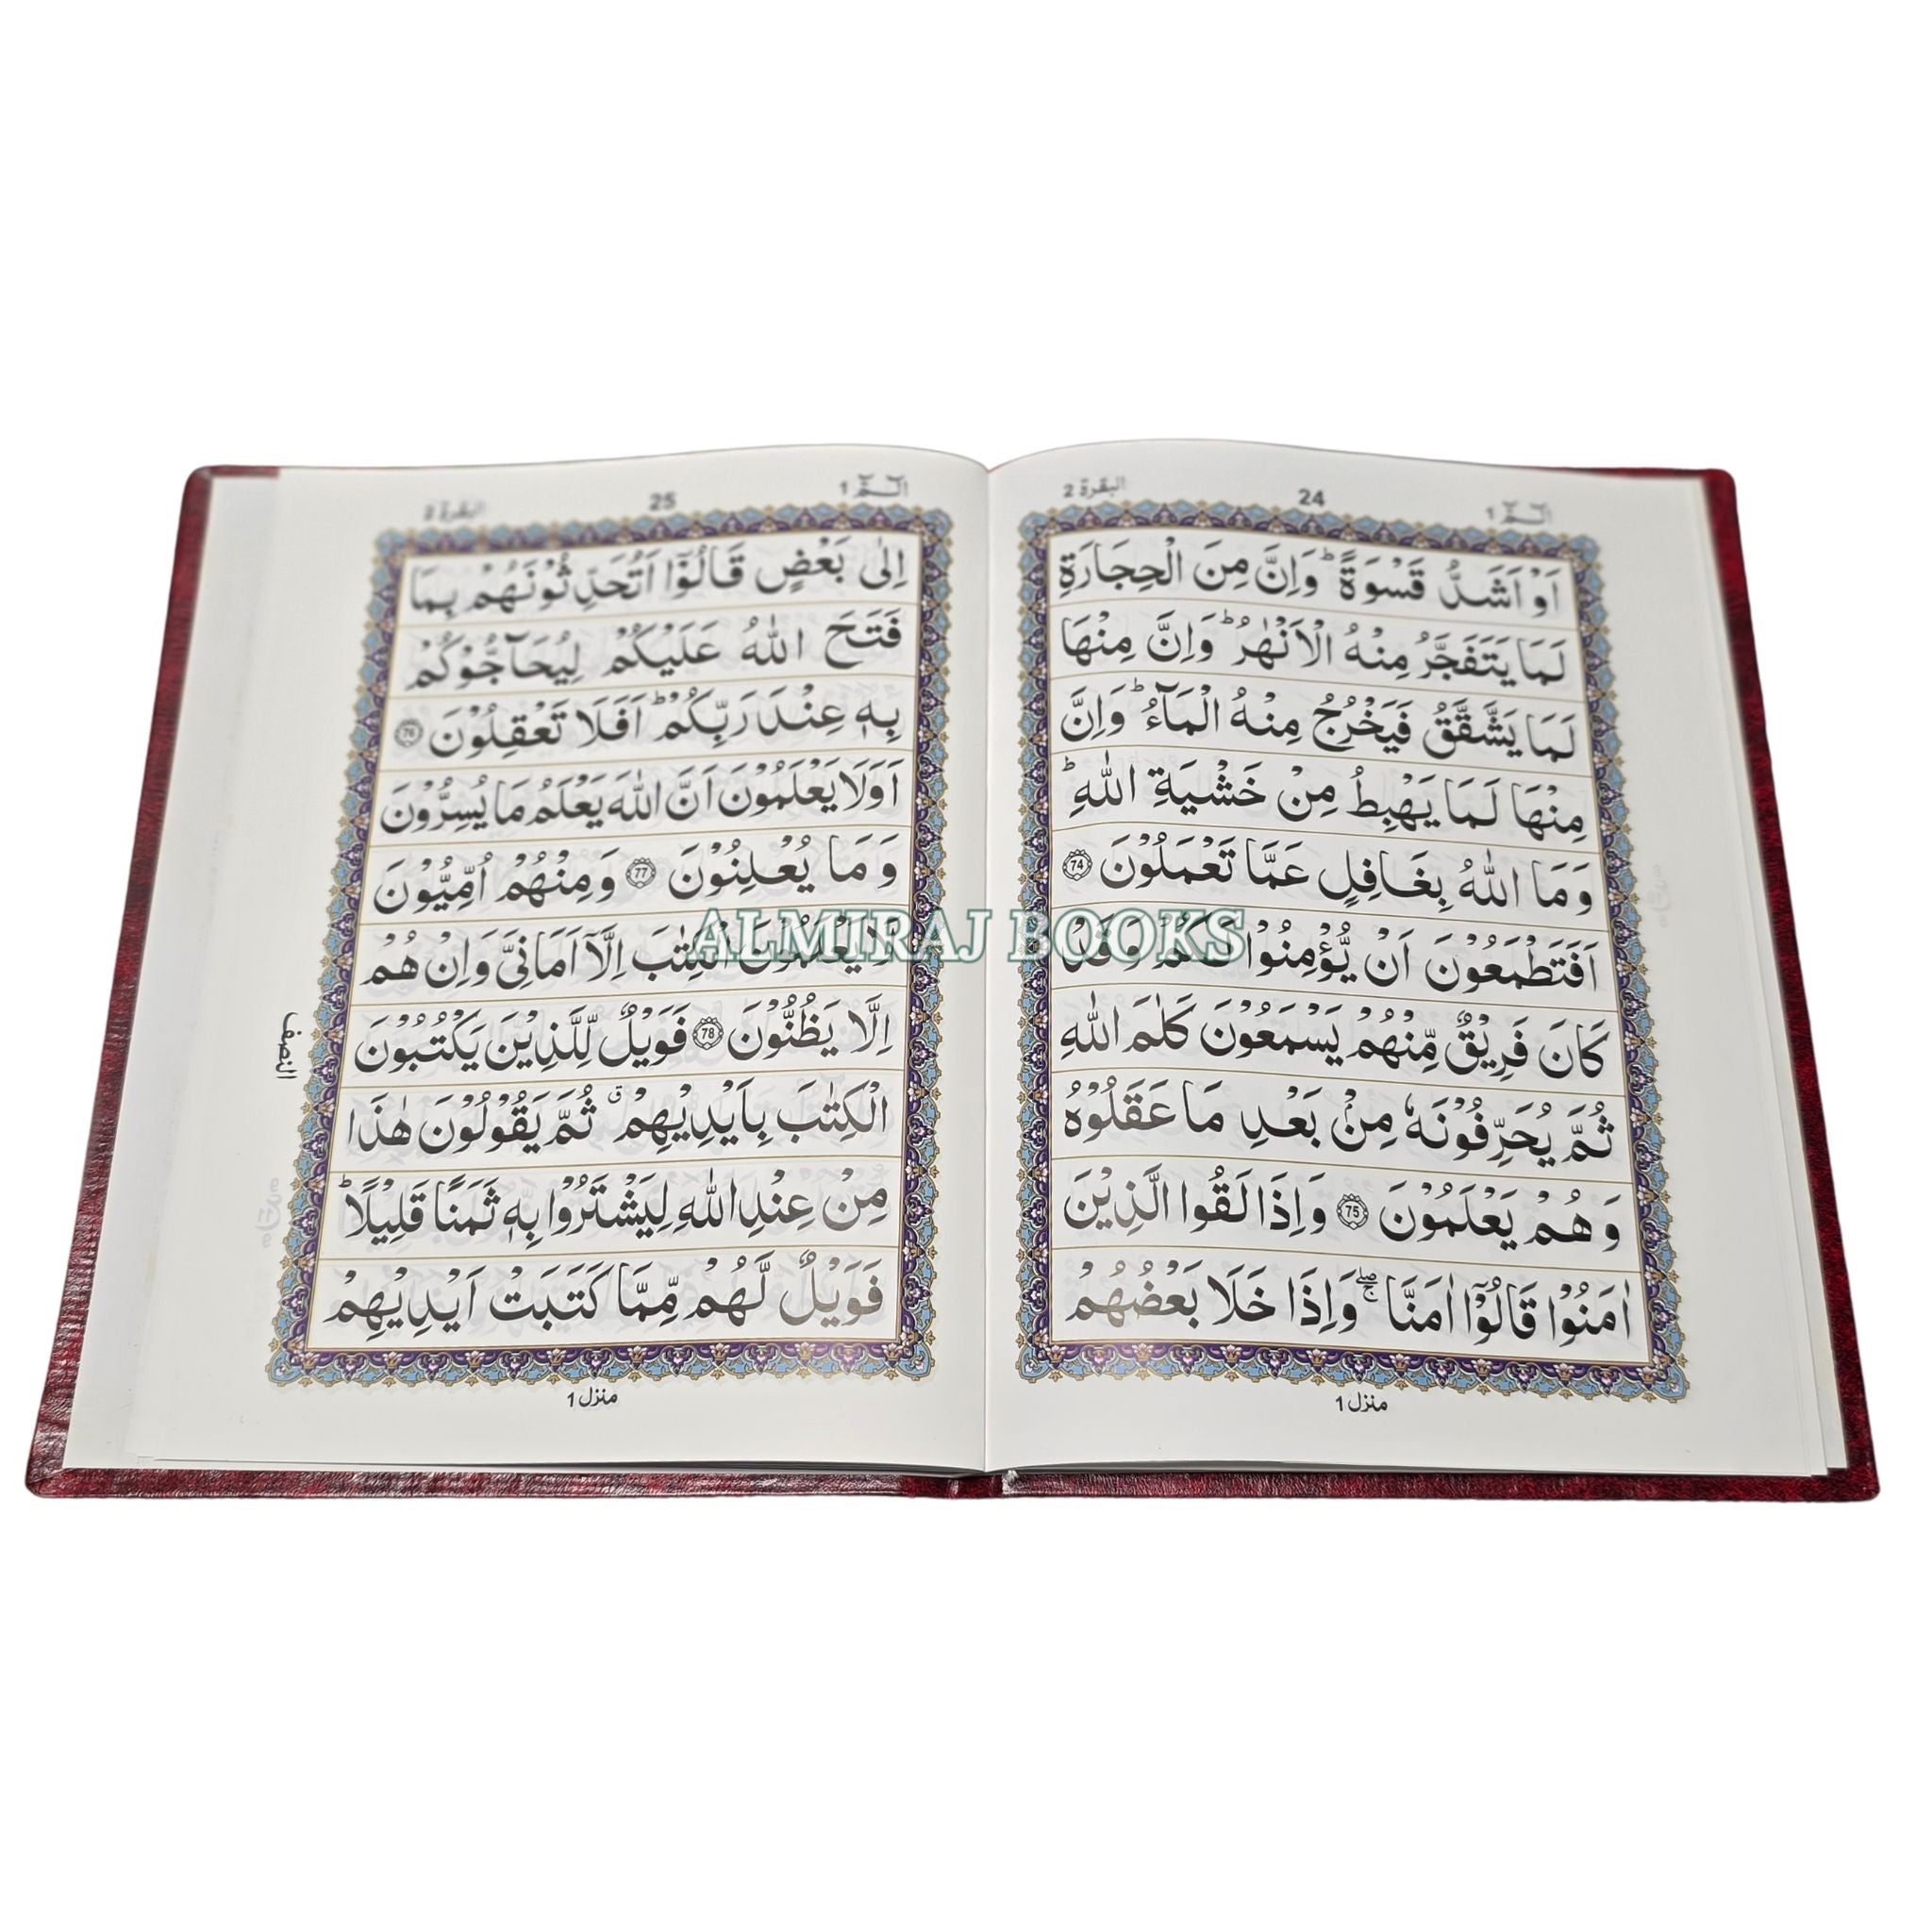 الٓـمّٓ 1
24
البقرة 2
اَوْ اَشَدُّ قَسْوَةً ؕ وَاِنَّ مِنَ الْحِجَارَةِ
لَمَا يَتَفَجَّرُ مِنْهُ الْاَنْهٰرُ ؕ وَاِنَّ مِنْهَا
لَمَا يَشَّقَّقُ فَيَخْرُجُ مِنْهُ الْمَآءُ ؕ وَاِنَّ
مِنْهَا لَمَا يَهْبِطُ مِنْ خَشْيَةِ اللّٰهِ ؕ
وَمَا اللّٰهُ بِغَافِلٍ عَمَّا تَعْمَلُوْنَ 74
اَفَتَطْمَعُوْنَ اَنْ يُّؤْمِنُوْا لَكُمْ وَقَدْ
كَانَ فَرِيْقٌ مِّنْهُمْ يَسْمَعُوْنَ كَلٰمَ اللّٰهِ
ثُمَّ يُحَرِّفُوْنَهٗ مِنْۢ بَعْدِ مَا عَقَلُوْهُ
وَهُمْ يَعْلَمُوْنَ 75 وَاِذَا لَقُوا الَّذِيْنَ
اٰمَنُوْا قَالُوْٓا اٰمَنَّا ۖۚ وَاِذَا خَلَا بَعْضُهُمْ
منزل 1
الٓـمّٓ 1
25
البقرة 2
اِلٰى بَعْضٍ قَالُوْٓا اَتُحَدِّثُوْنَهُمْ بِمَا
فَتَحَ اللّٰهُ عَلَيْكُمْ لِيُحَآجُّوْكُمْ
بِهٖ عِنْدَ رَبِّكُمْ ؕ اَفَلَا تَعْقِلُوْنَ 76
اَوَلَا يَعْلَمُوْنَ اَنَّ اللّٰهَ يَعْلَمُ مَا يُسِرُّوْنَ
وَمَا يُعْلِنُوْنَ 77 وَمِنْهُمْ اُمِّيُّوْنَ
لَا يَعْلَمُوْنَ الْكِتٰبَ اِلَّآ اَمَانِيَّ وَاِنْ هُمْ
اِلَّا يَظُنُّوْنَ 78 فَوَيْلٌ لِّلَّذِيْنَ يَكْتُبُوْنَ
الْكِتٰبَ بِاَيْدِيْهِمْ ۗ ثُمَّ يَقُوْلُوْنَ هٰذَا
مِنْ عِنْدِ اللّٰهِ لِيَشْتَرُوْا بِهٖ ثَمَنًا قَلِيْلًا ؕ
فَوَيْلٌ لَّهُمْ مِّمَّا كَتَبَتْ اَيْدِيْهِمْ
النصف
منزل 1
ALMIRAJ BOOKS